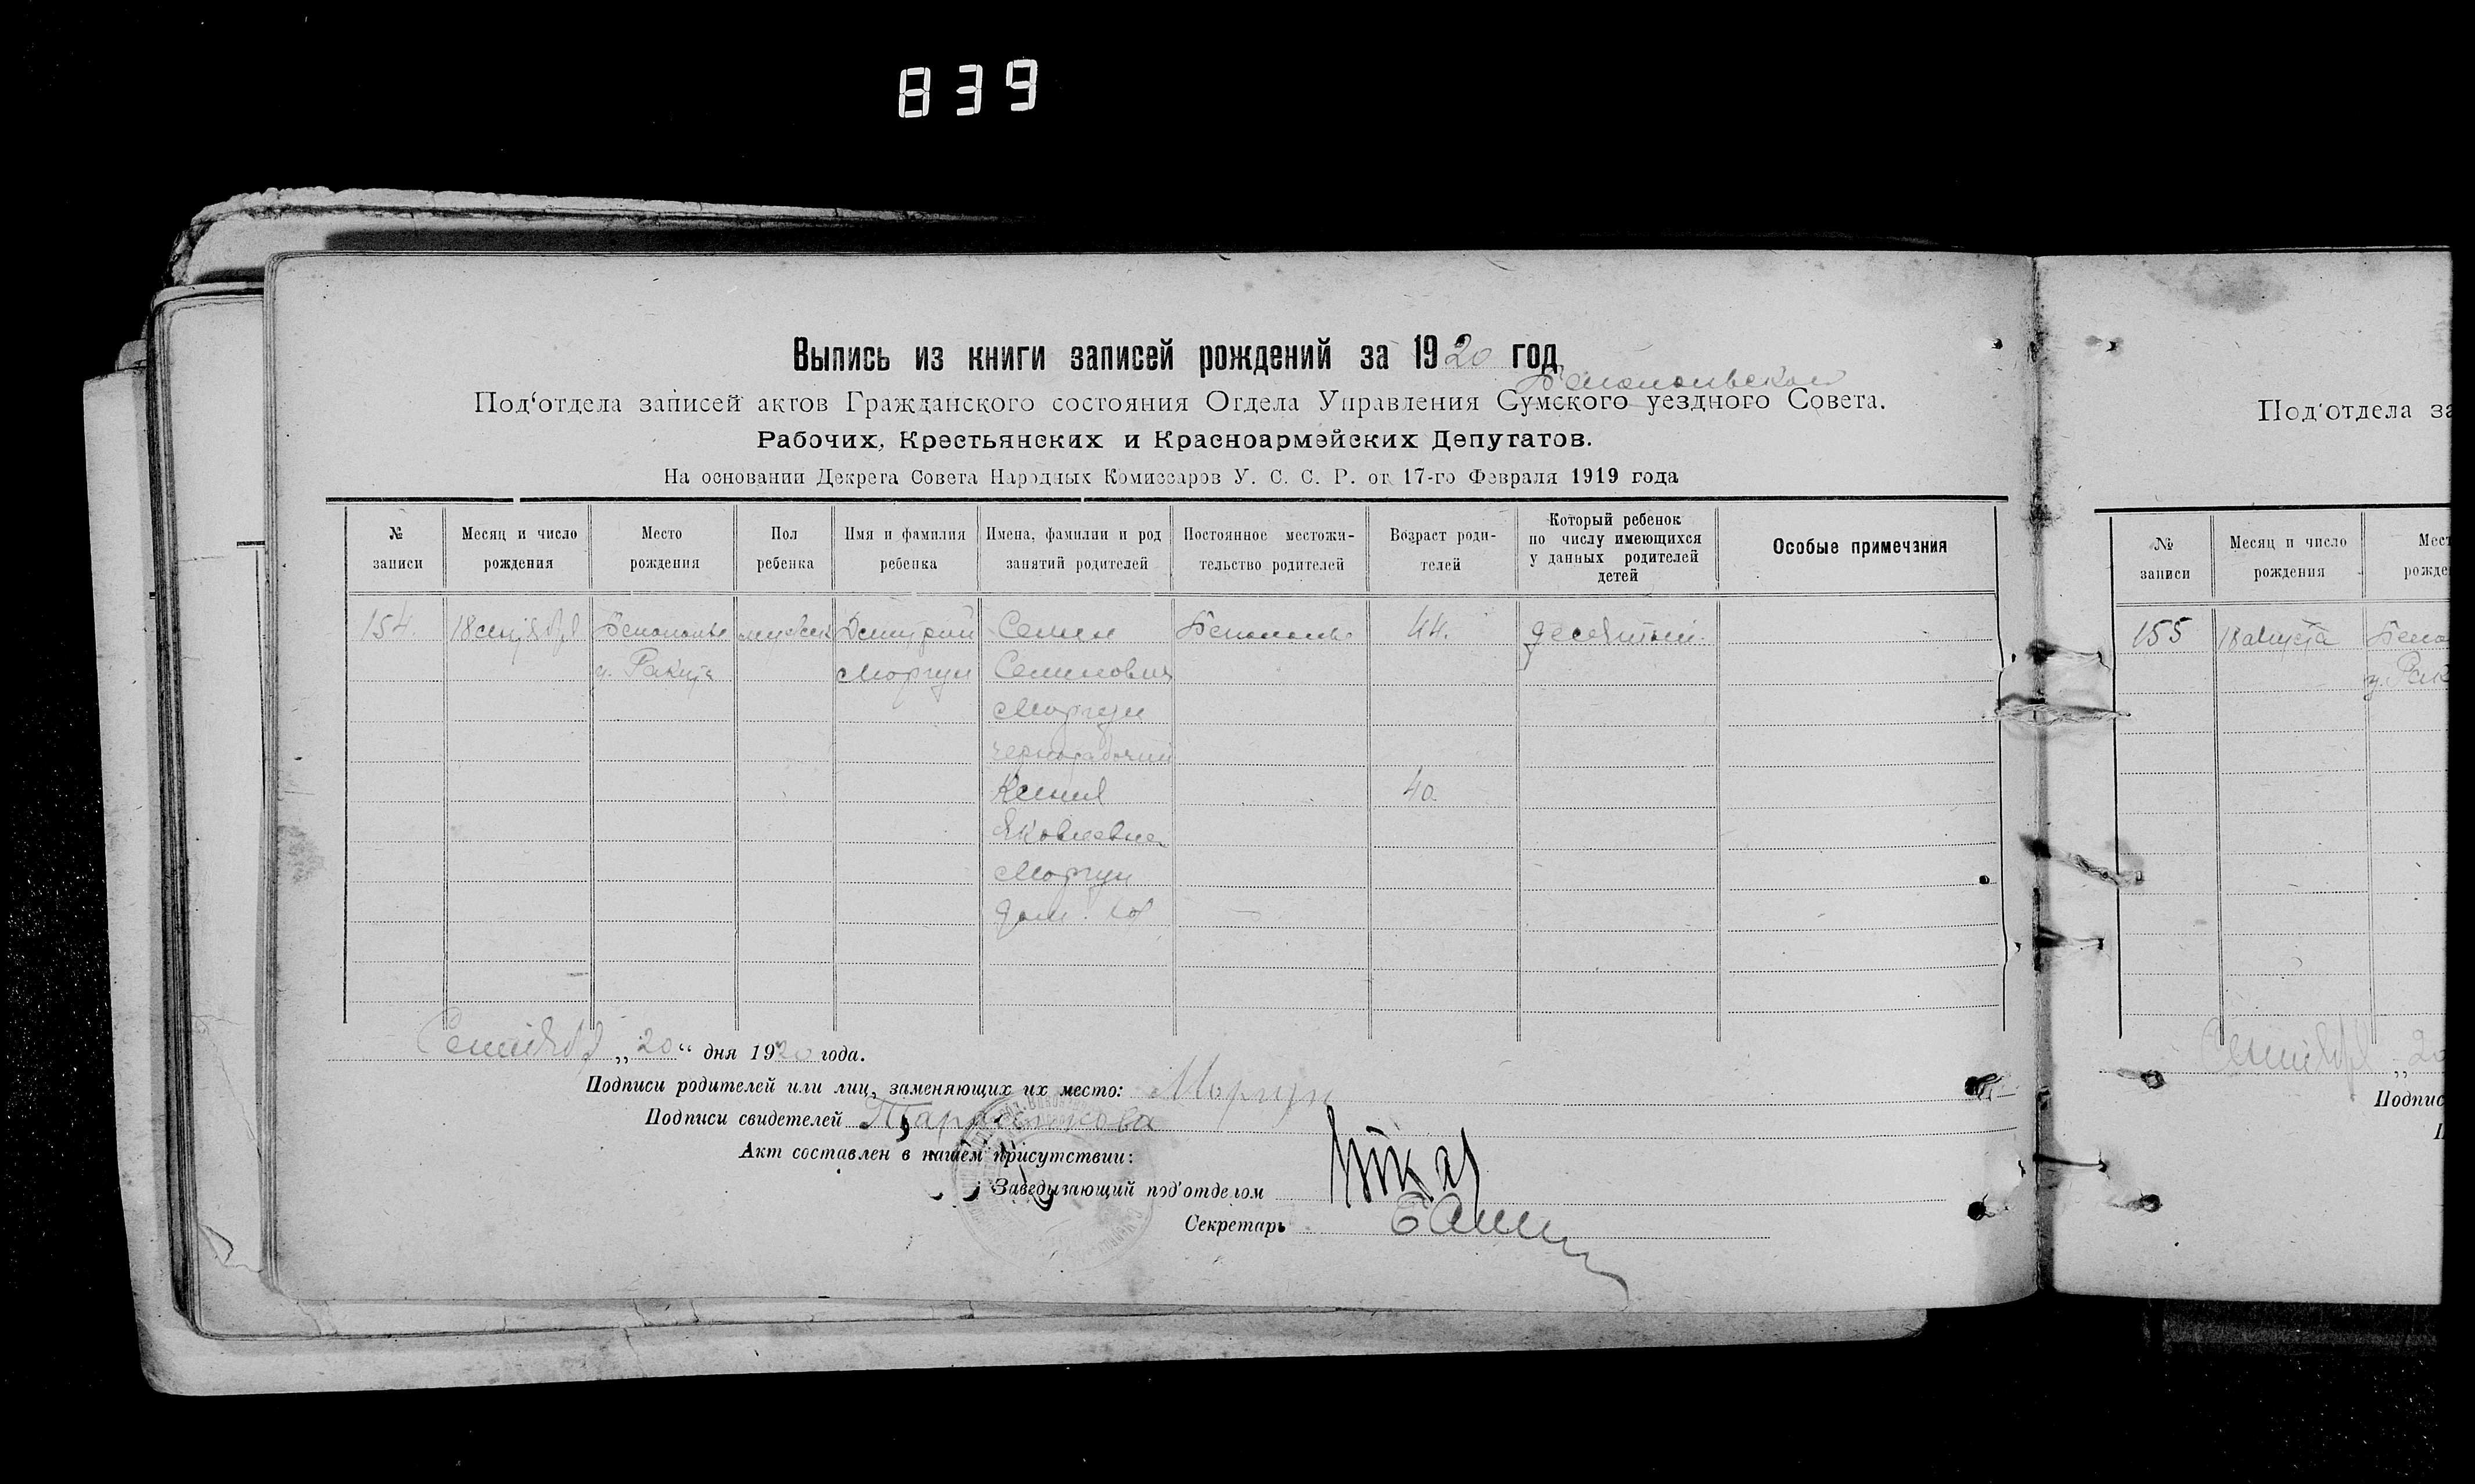 839
Выпись из книги записей рождений за 1920 год
Белопольской
Под‘отдела записей актов Гражданского состояния Отдела Управления Сумского уездного Совета.
Рабочих, Крестьянских и Красноармейских Депутатов.
На основании Декрета Совета Народных Комиссаров У. С. С. Р. от 17-го Февраля 1919 года
№ записи
Месяц и число рождения
Место рождения
Пол ребенка
Имя и фамилия ребенка
Имена, фамилии и род занятий родителей
Постоянное местожительство родителей
Возраст родителей
Который ребенок по числу имеющихся у данных родителей детей
Особые примечания
154. 18 сентября Белополье мужск Дмитрий Семен Белополье 44. десятый.
Моргун Семенович
Моргун
чернорабочий
Ксения 40.
Яковлевна
Моргун
дом. хоз
Сентября „20“ дня 1920 года.
Подписи родителей или лиц, заменяющих их место: Моргун
Подписи свидетелей Тарасенкова
Акт составлен в нашем присутствии:
Заведывающий под‘отделом
Секретарь
Под‘отдела за
№ записи
Месяц и число рождения
Мест
рожде
155 18 августа Бело
Сентября „20
Подпис